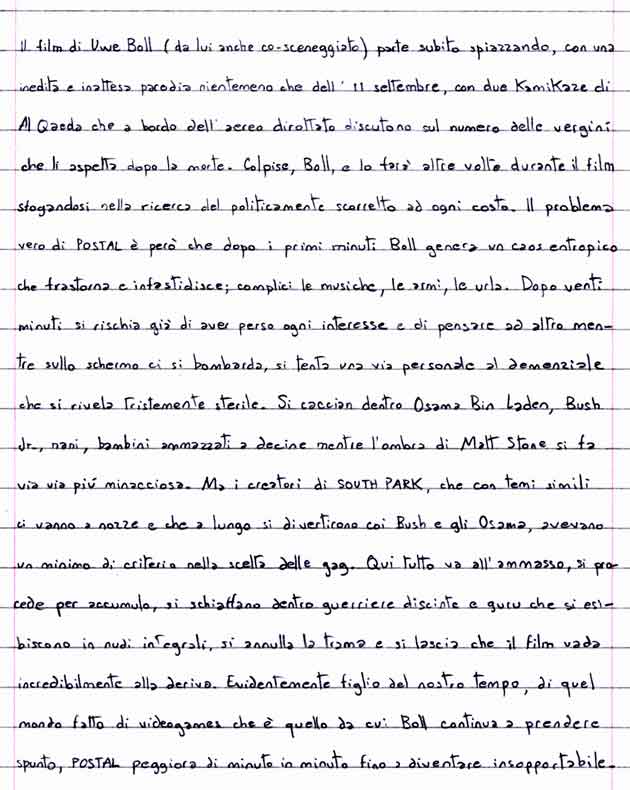 Il film di Uwe Boll (da lui anche co-sceneggiato) parte subito spiazzando, con una
inedita e inattesa parodia nientemeno che dell'11 settembre, con due Kamikaze di
Al Qaeda che a bordo dell'aereo dirottato discutono sul numero delle vergini
che li aspetta dopo la morte. Colpisce, Boll, e lo farà altre volte durante il film
sfogandosi nella ricerca del politicamente scorretto ad ogni costo. Il problema
vero di POSTAL è però che dopo i primi minuti Boll genera un caos entropico
che frastorna e infastidisce; complici le musiche, le armi, le urla. Dopo venti
minuti si rischia già di aver perso ogni interesse e di pensare ad altro men-
tre sullo schermo ci si bombarda, si tenta una via personale al demenziale
che si rivela tristemente sterile. Si caccian dentro Osama Bin Laden, Bush
Jr., nani, bambini ammazzati a decine mentre l'ombra di Matt Stone si fa
via via più minacciosa. Ma i creatori di SOUTH PARK, che con temi simili
ci vanno a nozze e che a lungo si divertirono coi Bush e gli Osama, avevano
un minimo di criterio nella scelta delle gag. Qui tutto va all'ammasso, si pro-
cede per accumulo, si schiaffano dentro guerriere discinte e guru che si esi-
biscono in nudi integrali, si annulla la trama e si lascia che il film vada
incredibilmente alla deriva. Evidentemente figlio del nostro tempo, di quel
mondo fatto di videogames che è quello da cui Boll continua a prendere
spunto, POSTAL peggiora di minuto in minuto fino a diventare insopportabile.